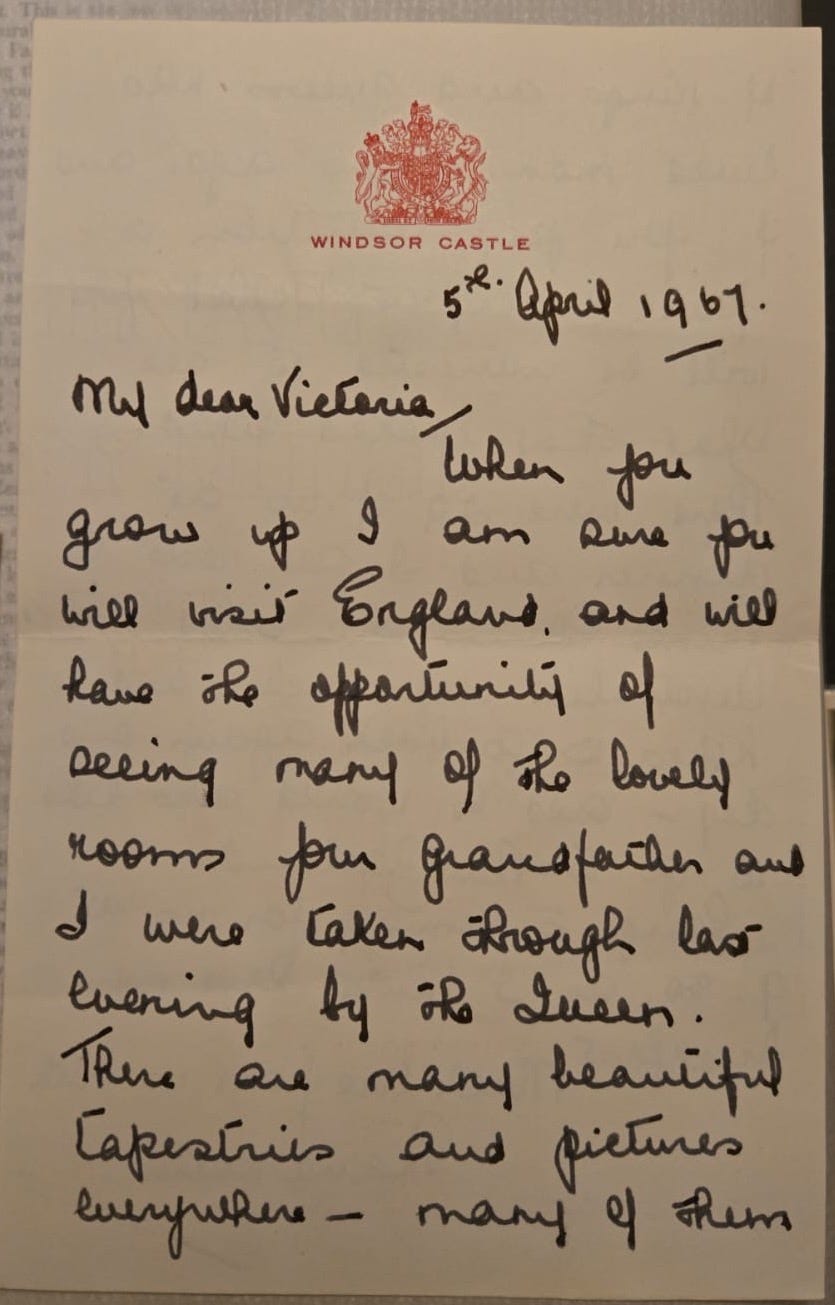 WINDSOR CASTLE
5th. April 1967.
My dear Victoria,
When you
grow up I am sure you
will visit England, and will
have the opportunity of
seeing many of the lovely
rooms your grandfather and
I were taken through last
evening by the Queen.
There are many beautiful
tapestries and pictures
everywhere – many of them